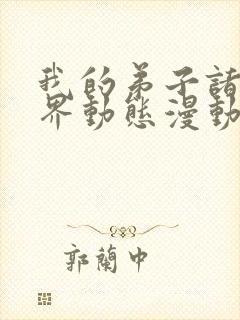 我的弟子諸
界動態漫動
郭蘭中